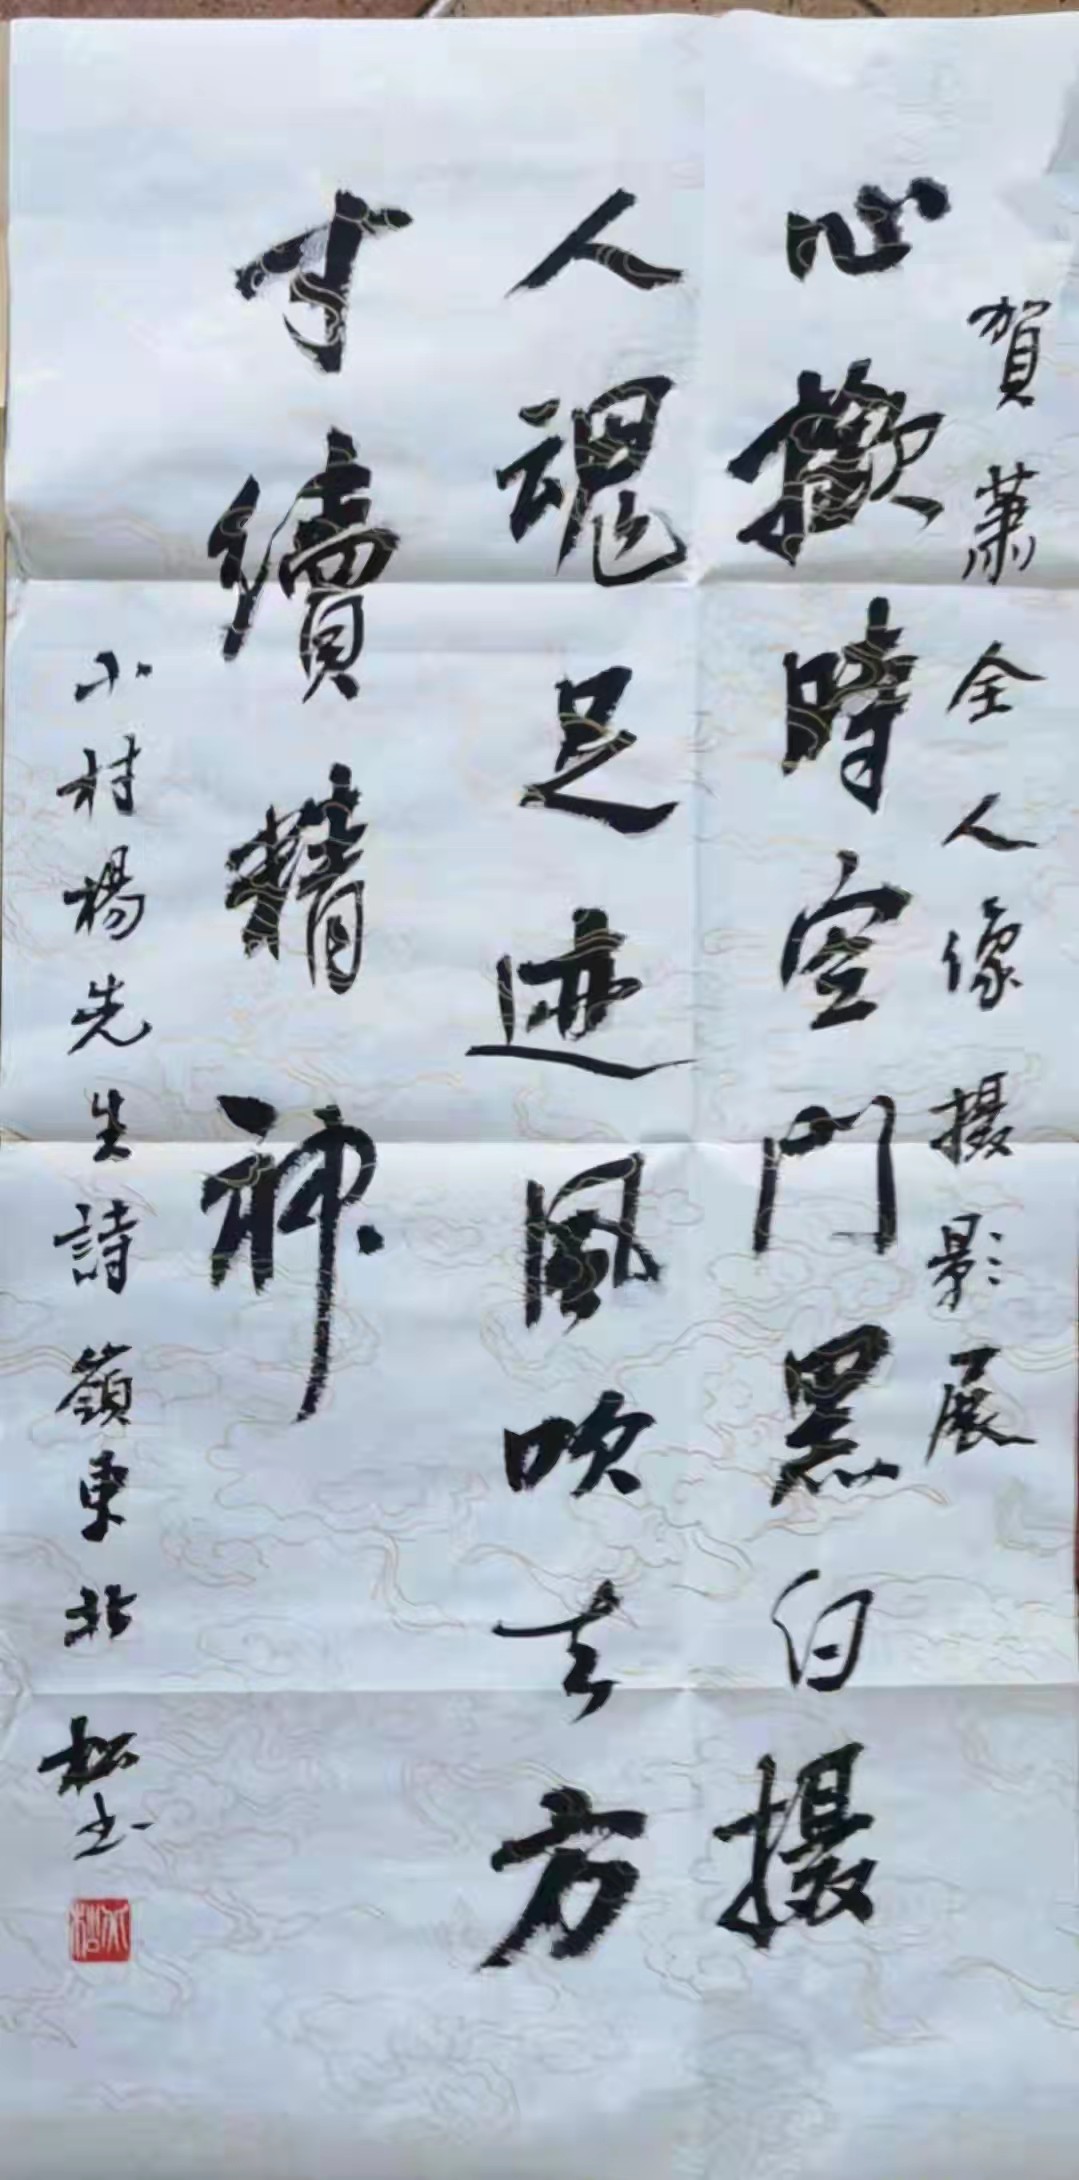 賀蕭全人像摄影展
心撳時空門黑白摄
人魂足迹風吹去方
寸續精神
小村楊先生詩嶺東北松书